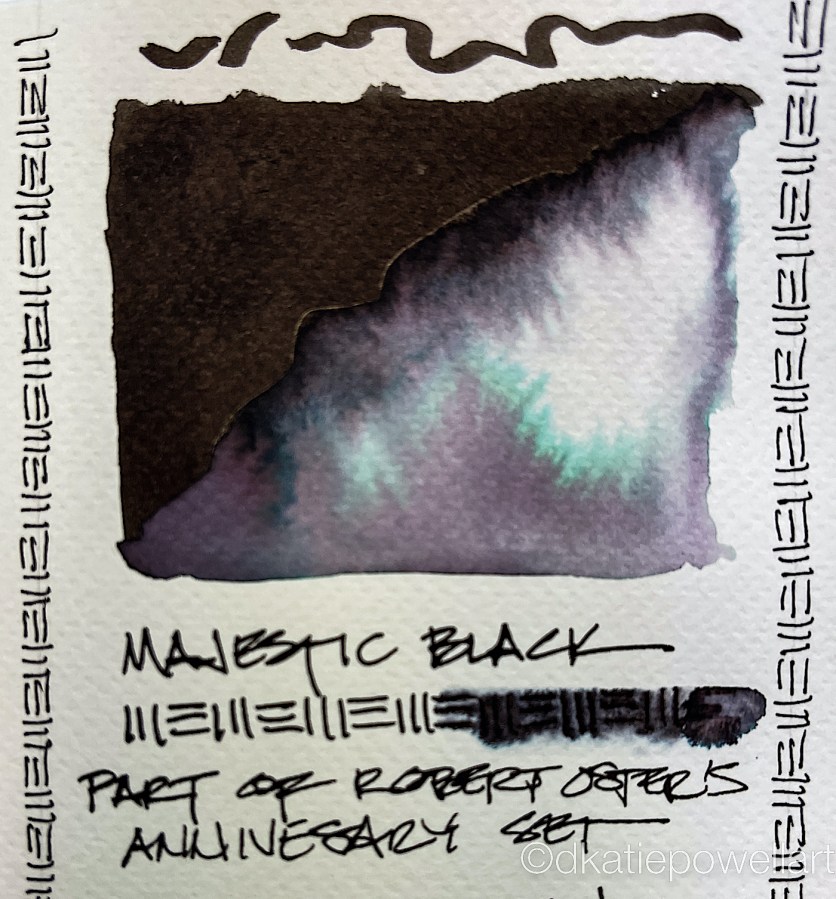 MAJESTIC BLACK
PART OF ROBERT OSTER'S
ANNIVESARY SET
©dkatiepowellart